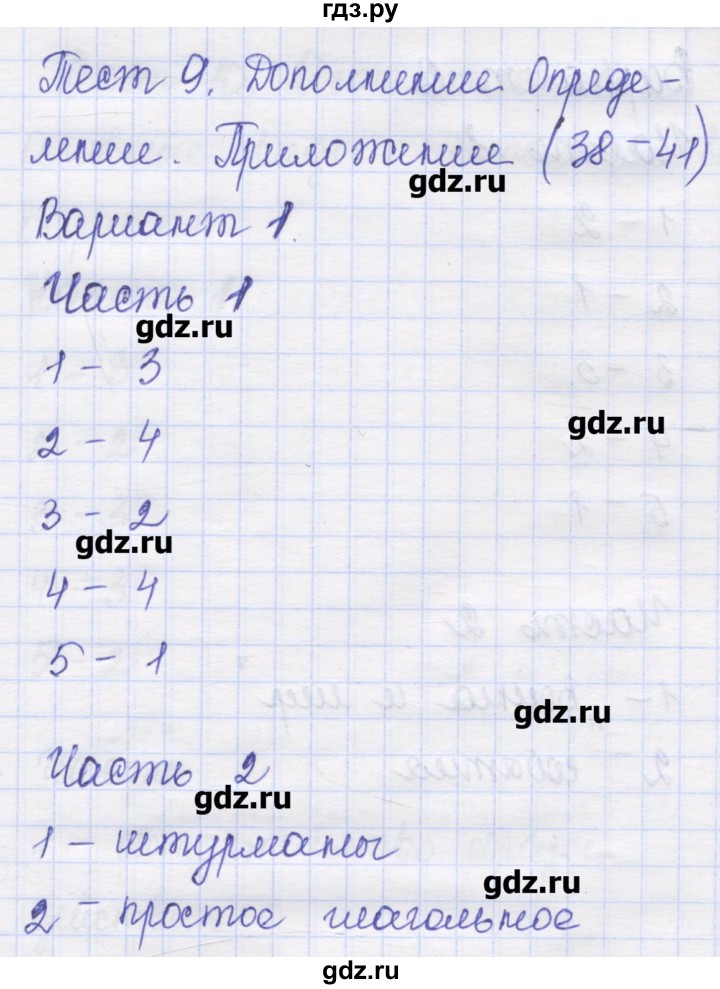 гдз.ру
Тест 9. Дополнение. Опреде-
ление. Приложение (38-41)
gdz.ru
Вариант 1.
Часть 1
gdz.ru
1 - 3
gdz.ru
2 - 4
3 - 2
gdz.ru
4 - 4
5 - 1
gdz.ru
Часть 2
gdz.ru
1 - штурманы
gdz.ru
2 - простое глагольное
gdz.ru